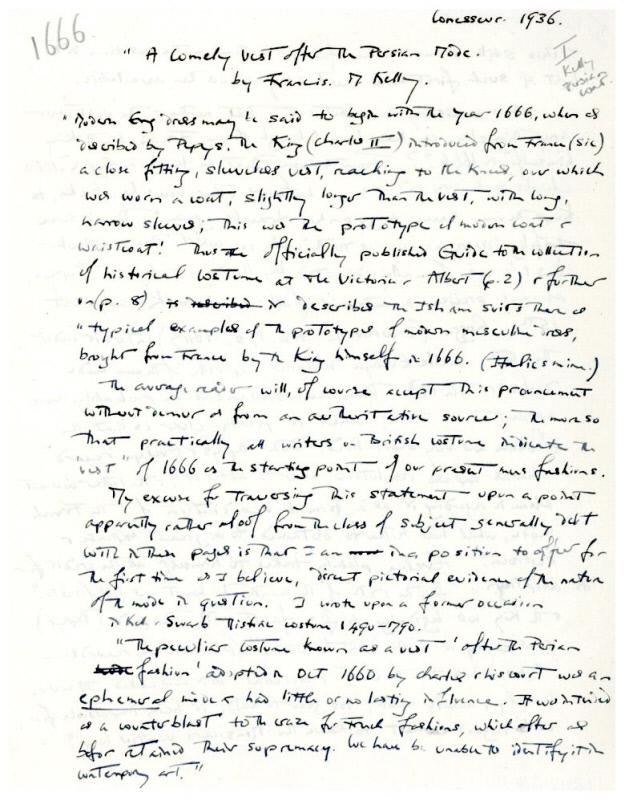 1666.
Connoisseur. 1936.
"A Comely Vest after the Persian Mode.
by Francis. M Kelly.
I
Kelly
Persian
"Modern Eng dress may be said to begin with the year 1666, when as
described by Pepys. the King (Charles II) introduced from France (sic)
a close fitting, sleeveless vest, reaching to the knees, over which
was worn a coat, slightly longer than the vest, with long,
narrow sleeves; this was the prototype of modern coat &
waistcoat! Thus the officially published Guide to the collection
of historical costume at the Victoria & Albert (p. 2) & further
on (p. 8) is described it describes the Isham suits there as
"typical examples of the prototypes of modern masculine dress,
brought from France by the King himself in 1666. (Italics mine.)
The average reader will, of course accept this
without demur as from an authoritative source; the more so
that practically all writers on British costume indicate the
vest" of 1666 as the starting point of our present mens fashions.
My excuse for traversing this statement upon a point
apparently rather aloof from the class of subject generally dealt
with in these pages is that I am in a position to offer for
the first time as I believe, direct pictorial evidence of the nature
of the mode in question. I wrote upon a former occasion
in Kel & Swarb Historic costume 1490-1790.
"The peculiar costume known as a vest 'after the Persian
fashion' adopted in Oct 1660 by Charles & his court was an
ephemeral mode & had little or no lasting influence. It was intended
as a counterblast to the craze for French fashions, which after as
before retained their supremacy. We have be unable to identify it in
contemporary art."